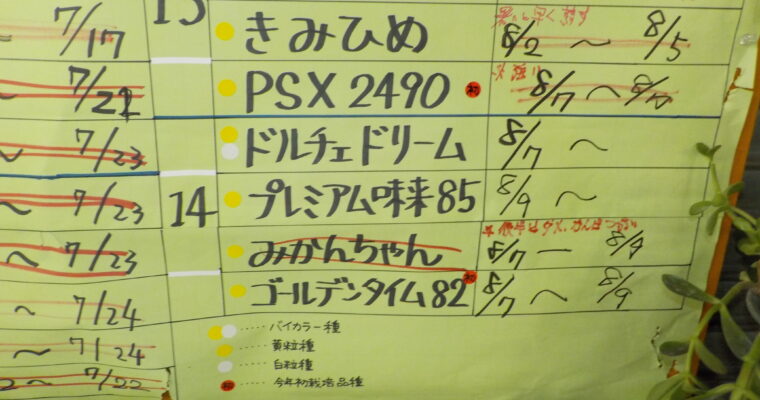 7/17 13 きみひめ 8/2 〜 8/5
〜 7/21 PSX 2490 初 8/7 〜
〜 7/23 ドルチェドリーム 8/7 〜
〜 7/23 14 プレミアム味来85 8/9 〜
〜 7/23 みかんちゃん 8/7 — 8/9
7/24 ゴールデンタイム82 初 8/7 〜 8/9
〜 7/24
〜 7/22
・・・・・バイカラー種
・・・・・黄粒種
・・・・・白粒種
初 ・・・・・今年初栽培品種